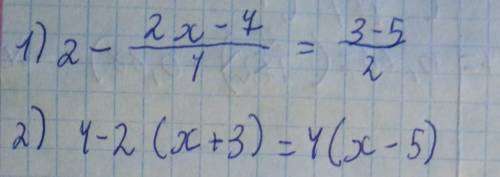 1) 2 - \frac{2x - 7}{4} = \frac{3-5}{2}
2) 4-2(x+3)=4(x-5)